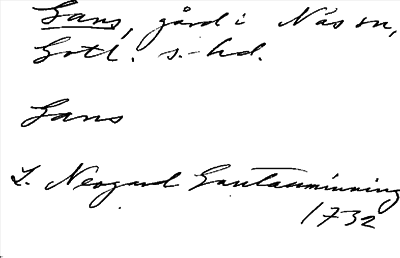 Gans, gård i Näs sn,
Gotl. s. hd.
Gans
L. Neogard Gautauminning
1732